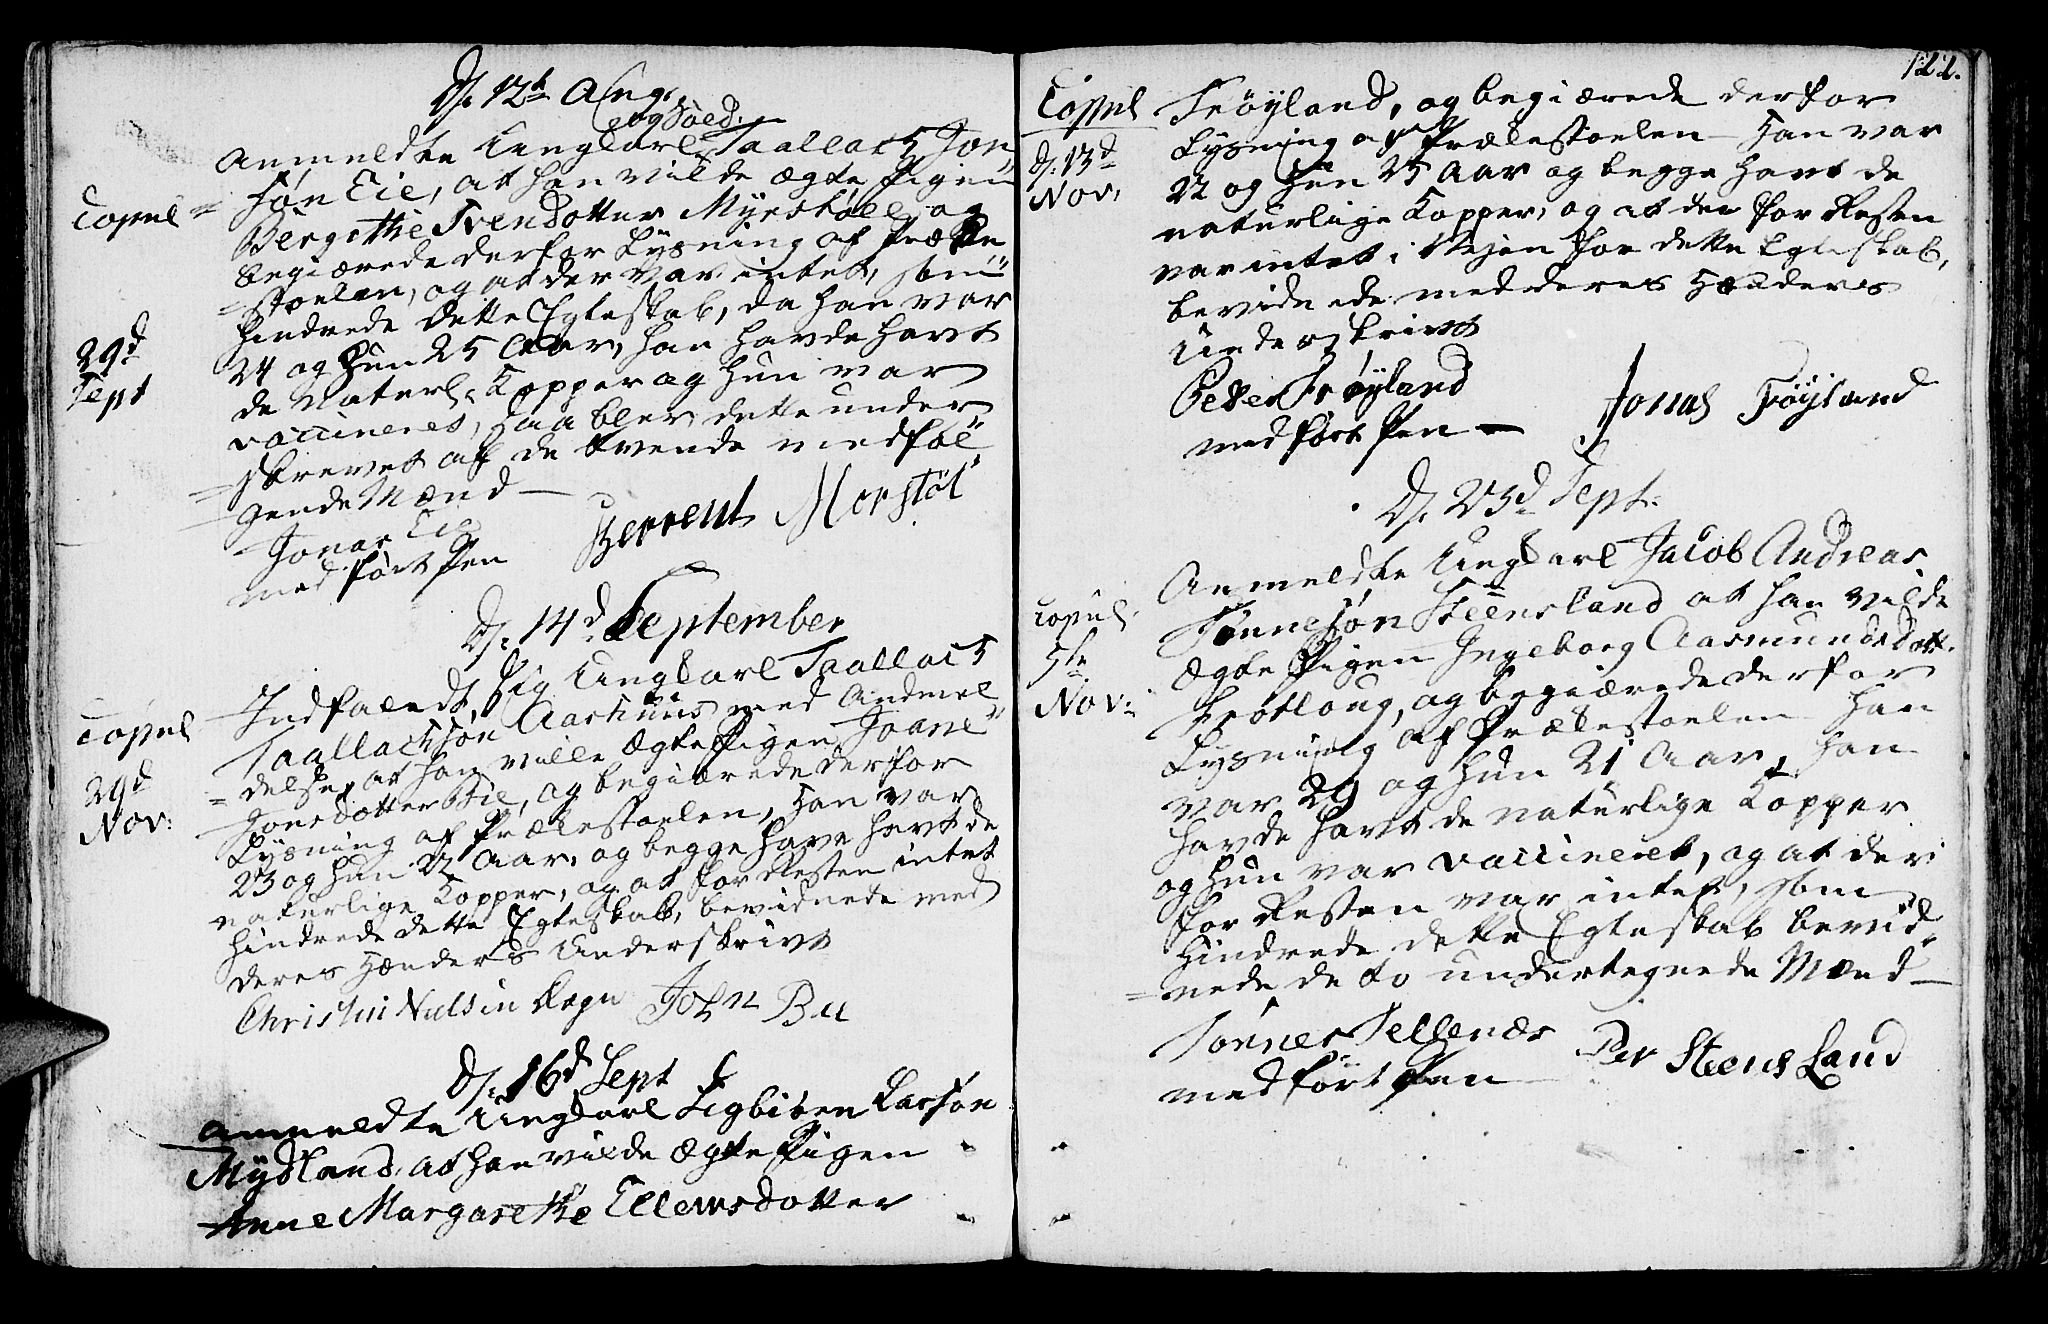 D. 12te Aug.
og Sold:
Anmeldte Ungkarl Taallack Jon
søn Eie, at han vilde ægte Pigen
Copul
Bergithe Svendsdotter Myrstøll og
begiærede derfor Lysning af Præke
stoelen, og at der var intet, som
hindrede dette Egteskab, da han var
29d
Sept
24 og Hun 25 Aar, han havde havt
de Naturl: Kopper og hun var
vaccineret, saa blev dette under
skrevet af de tvende medføl
gende Mænd
Jonas Eie
med ført Pen
Berrent Morstøl
D. 14d September
Indfandt sig Ungkarl Taallack
Copul
Taallacksøn Aarhuus med Andmel
delse, at han ville ægte Pigen Joane
29d
Nov:
Jonsdotter Bie, og begiærede derfor
Lysning af Prækestoelen, Han var
23 og hun 22 Aar, og begge have havt de
naturlige Kopper, og at for Resten intet
hindrede dette Egteskab, bevidnede med
deres Hænders Underskrivt
Christen Nielsen Røgn
John Bu
D. 16d Sept
anmeldte Ungkarl Sigbiøen Larsøn
Mydland, at han vilde ægte Pigen
Anne Margarethe Ellewsdotter
122.
Copul
D. 13d
Nov.
Frøyland, og begiærede derfor
Lysning af Prækestoelen Han var
22 og Hun 25 Aar og begge havt de
naturlige Kopper, og at der for Resten
var intet i Vejen for dette Egteskab,
bevidnede med deres Hænders
Underskrivt
Peder Frøyland
med ført Pen
Jonas Frøyland
D. 23d Sept.
Anmeldte Ungkarl Jacob Andreas
Copul.
5te
Nov:
Tønnesøn Steensland at han vilde
ægte Pigen Ingeborg Aasmundsdott.
Frøtloug, og begiærede derfor
Lysning af Prækestoelen Han
var 29 og Hun 21 Aar, Han
havde havt de naturlige Kopper
og Hun var vaccineret, og at der
for Resten var intet, som
Hindrede dette Egteskab bevid
nede de to undertegnede Mænd
Tønnes Tellenæs
med ført Pen
Per Steens Land